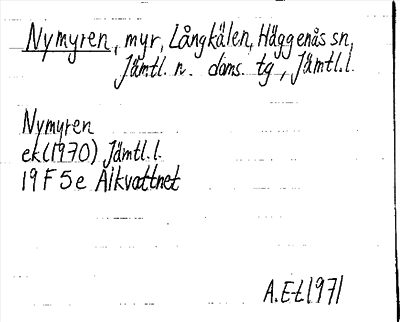 Nymyren, myr, Långkälen, Häggenås sn,
Jämtl. n. doms. tg, Jämtl.l.
Nymyren
ek(1970) Jämtl.l.
19 F 5 e Aikvattnet
A.E-t 1971